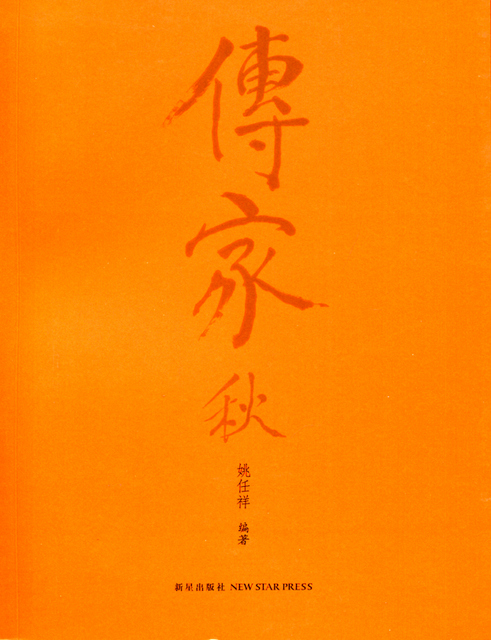 傳家
秋
姚任祥 编著
新星出版社 NEW STAR PRESS